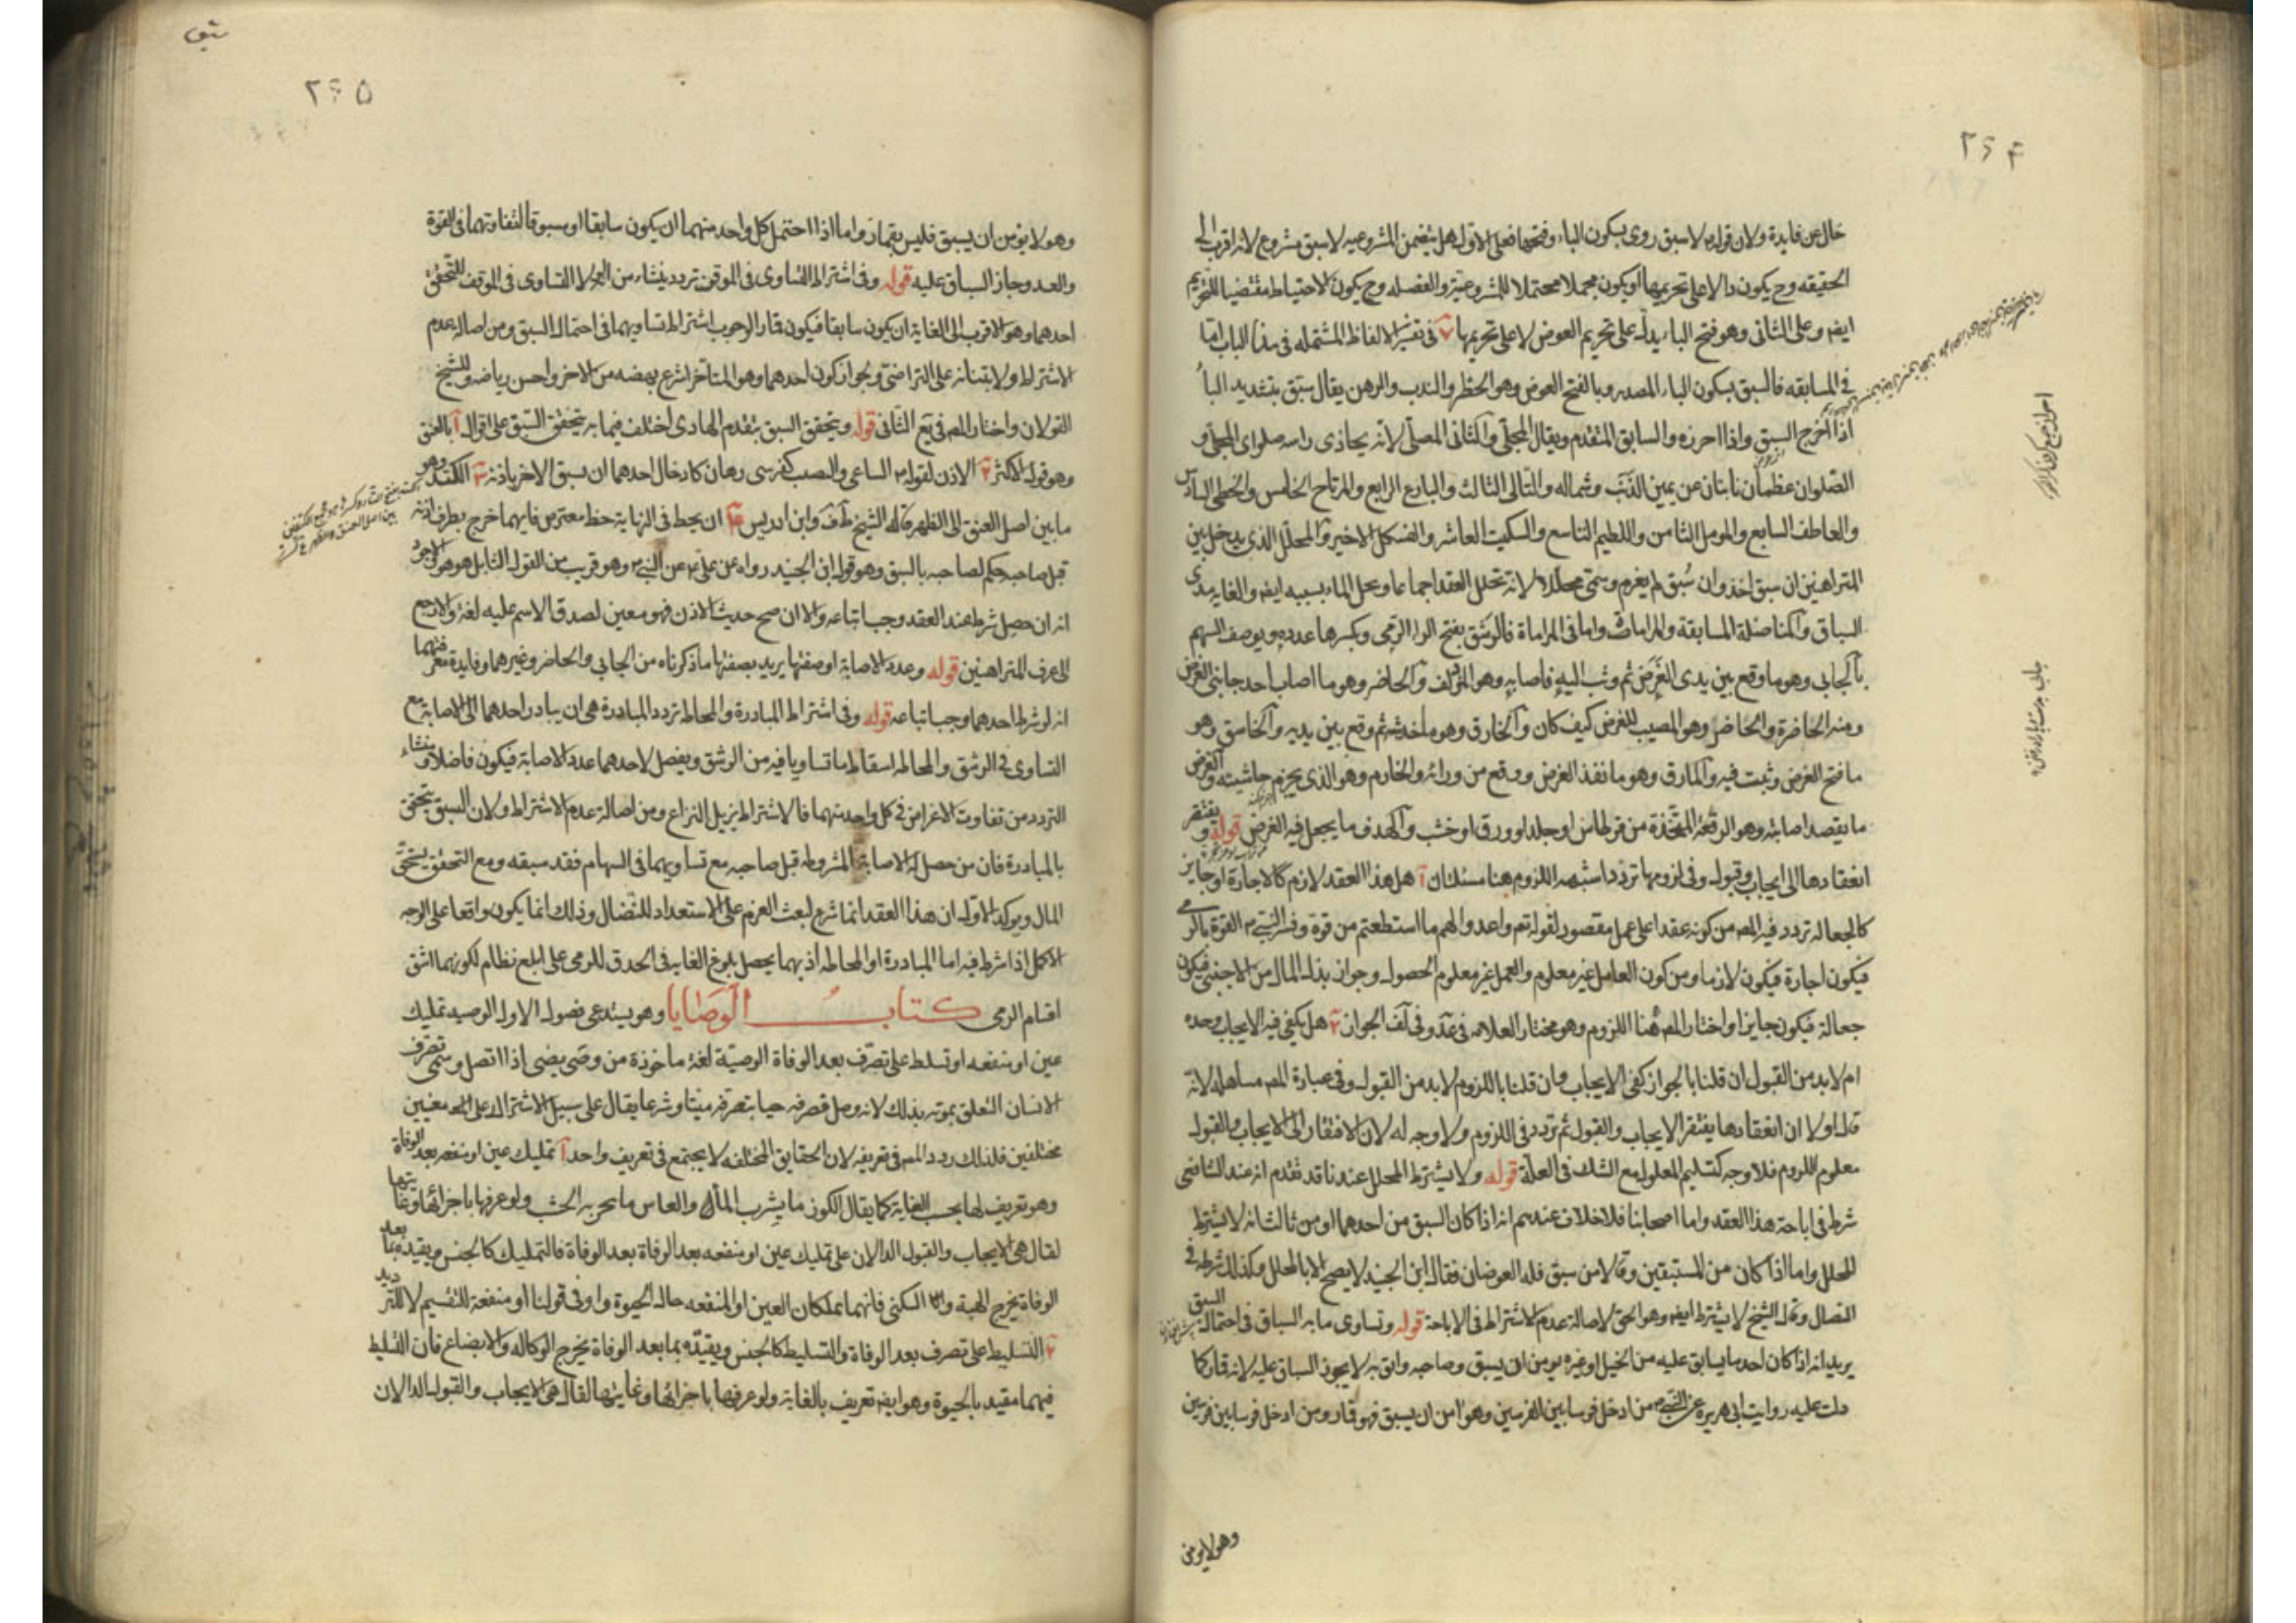 ٢٦۴
خال عن فايدة ولان قوله لا سبق روى بسكون الباء وفتحها فعلى الاول هل يتضمن المشروعيه لا سبق مشروع لانه اقرب الى
الحقيقه وح يكون دالا على تحريمها او يكون مجملا محتملا للمشروعية والفضله وح يكون الاحتياط مقتضيا للتحريم
ايضا وعلى الثانى وهو فتح الباء يدل على تحريم العوض لا على تحريمها ٧ فى تفسير الالفاظ المشتمله فى هذا الباب اما
فى المسابقه فالسبق بسكون الباء المصدر وبالفتح العوض وهو الخطر والندب والرهن يقال سبق بتشديد الباء
اذا اخرج السبق واذا احرزه والسابق المتقدم ويقال المجلى والثانى المصلى لانه يحاذى راسه صلواى المجلى و
الصلوان عظمان نابتان عن يمين الذنب وشماله والتالى الثالث والبارع الرابع والمرتاح الخامس والحظى السادس
والعاطف السابع والمومل الثامن واللطيم التاسع والسكيت العاشر والفسكل الاخير والمحلل الذى يدخل بين
المتراهنين ان سبق اخذ وان سبق لم يغرم وسمى محللا لانه تحلل العقد اجماعا ويحل المال بسببه ايضا والغايه مدى
السباق والمناضلة المسابقة والمرامات واما فى المراماة فالرشق بفتح الراء الرمى وبكسرها عدده ويوصف السهم
بالحابى وهو ما وقع بين يدى الغرض ثم وثب اليه فاصابه وهو المزدلف والخاضر وهو ما اصاب احد جانبى الغرض
ومنه الخاضرة والخاضر وهو المصيب للغرض كيف كان والخارق وهو ما خدشه ثم وقع بين يديه والخاسق وهو
ما فتح الغرض وثبت فيه والمارق وهو ما نفذ الغرض ووقع من ورائه والخارم وهو الذى يخرم حاشيته والغرض
ما يقصد اصابته وهو الرقعة المتخذة من قرطاس او جلد او ورق او خشب والهدف ما يجعل فيه الغرض قوله ويفتقر
انعقادها الى ايجاب وقبول وفى لزومها تردد اشبهه اللزوم هنا مسئلتان آ هل هذا العقد لازم كالاجارة او جايز
كالجعاله تردد فيه المص من كونه عقدا على عمل مقصور لقوله تعم واعدوا لهم ما استطعتم من قوة وفسر النبى القوة بالرمى
فيكون اجارة فيكون لازما ومن كون العامل غير معلوم والعمل غير معلوم الحصول وجواز بذل المال من الاجنبى فيكون
جعالة فيكون جايزا واختار المص هنا اللزوم وهو مختار العلامه فى عد وفى لف الجواز ٢ هل يكفى فيه الايجاب وحده
ام لابد من القبول ان قلنا بالجواز كفى الايجاب وان قلنا باللزوم لابد من القبول وفى عبارة المص مساهله لانه
قال اولا ان انعقادها يفتقر الايجاب والقبول ثم تردد فى اللزوم ولا وجه له لان الافتقار الى الايجاب والقبول
معلوم اللزوم فلا وجه كتسليم المعلول مع الشك فى العلة قوله ولا يشترط المحلل عندنا قد تقدم انه عند الشافعى
شرط فى اباحة هذا العقد واما اصحابنا فلا خلاف عندهم انه اذا كان السبق من احدهما او من ثالث انه لا يشترط
المحلل واما اذا كان من المستبقين وقالا من سبق فله العوضان فقال ابن الجنيد لا يصح الا بالمحلل وكذلك شرطه فى
النضال وقال الشيخ لا يشترط ايضا وهو الحق لاصالة عدم الاشتراط فى الاباحة قوله وتساوى ما به السباق فى احتمال السبق
يريد انه اذا كان احد ما يسابق عليه من الخيل او غيره يومن ان يسبق وصاحبه واثق به لا يجوز السباق عليه لانه قمار كما
دلت عليه روايت ابى هريرة عن النبى من ادخل فرسا بين الفرسين وهو امن ان يسبق فهو قمار ومن ادخل فرسا بين فرسين
وهو لا يومن
٢٦٥
وهو لا يومن ان يسبق فليس بقمار واما اذا احتمل كل واحد منهما ان يكون سابقا او مسبوقا لتفاوتهما فى القوة
والعدو جاز السباق عليه قوله وفى اشتراط التساوى فى الموقف تردد ينشاء من التساوى فى الموقف للتحقق
احدهما وهو الاقرب الى الغاية ان يكون سابقا فيكون قمارا لوجوب اشتراط تساويهما فى احتمال السبق ومن اصالة عدم
الاشتراط ولابتنائه على التراضى ولجواز كون احدهما وهو المتاخر اسرع نهضه من الاخر واحسن رياضه وللشيخ
القولان واختار المص فى يع الثانى قوله ويتحقق السبق بتقدم الهادى اختلف فيما به يتحقق السبق على اقوال آ بالعنق
وهو قول الاكثر ٢ الاذن لقوله الساعى والنصب كفرسى رهان كاد خال احدهما ان يسبق الاخر باذنه ٣ الكتد وهو
ما بين اصل العنق الى الظهر قاله الشيخ ط ف وابن ادريس ۴ ان يحط فى النهاية حظ معترض فايهما خرج بطرف اذنه
قبل صاحبه حكم لصاحبه بالسبق وهو قول ابن الجنيد رواه عن على عن النبى وهو قريب من القول القابل هو هو والاجود
انه ان حصل شرط عند العقد وجب اتباعه والا ان صح حديث الاذن فهو معين لصدق الاسم عليه لغة والا رجع
الى عرف المتراهنين قوله وعدد الاصابة وصفتها يريد بصفتها ما ذكرناه من الحابى والخاضر وغيرهما وفايدة معرفتهما
انه لو شرط احدهما وجب اتباعه قوله وفى اشتراط المبادرة والمحاطه تردد المبادرة هى ان يبادر احدهما الى الاصابة مع
التساوى فى الرشق والمحاطه اسقاط ما تساويا فيه من الرشق ويفضل لاحدهما عدد الاصابة فيكون فاضلا ومنشاء
التردد من تفاوت الاغراض فى كل واحد منهما فالاشتراط يزيل النزاع ومن اصالة عدم الاشتراط ولان السبق يتحقق
بالمبادرة فان من حصل له الاصابة المشروطه قبل صاحبه مع تساويهما فى السهام فقد سبقه ومع التحقق يستحق
المال ويوكد الاول ان هذا العقد انما شرع لبعث العزم على الاستعداد للنضال وذلك انما يكون واقعا على الوجه
الاكمل اذا شرط فيه اما المبادرة او المحاطه اذ بهما يحصل بلوغ الغايه فى الحدق للرمى على ابلغ نظام لكونهما اشق
اقسام الرمى كتاب الوصايا وهو يستدعى فصول الاول الوصيه تمليك
عين او منفعه او تسلط على تصرف بعد الوفاة الوصية لغة ماخوذة من وصى يصى اذا اتصل وسمى تصرف
الانسان المتعلق بموته بذلك لانه وصل تصرفه حيا بتصرفه ميتا وشرعا يقال على سبيل الاشتراك على معنيين
مختلفين فلذلك ردد المص فى تعريفه لان الحقايق المختلفه لا يجتمع فى تعريف واحد آ تمليك عين او منفعه بعد الوفاة
وهو تعريف لها بحسب الغاية كما يقال الكوز ما يشرب الماء والفاس ما ينحر به الخشب ولو عرفها باجزائها وغايتها
لقال هى الايجاب والقبول الدالان على تمليك عين او منفعه بعد الوفاة فالتمليك كالجنس ويقيده بما بعد
الوفاة يخرج الهبة والسكنى فانهما يملكان العين او المنفعه حال الحيوة واو فى قولنا او منفعة للتقسيم لا للترديد
٢ التسليط على تصرف بعد الوفاة والتسليط كالجنس ويقيده بما بعد الوفاة يخرج الوكاله والابضاع فان التسليط
فيهما مقيد بالحيوة وهو ايضا تعريف بالغاية ولو عرفها باجزائها وغايتها لقال هى الايجاب والقبول الدالان